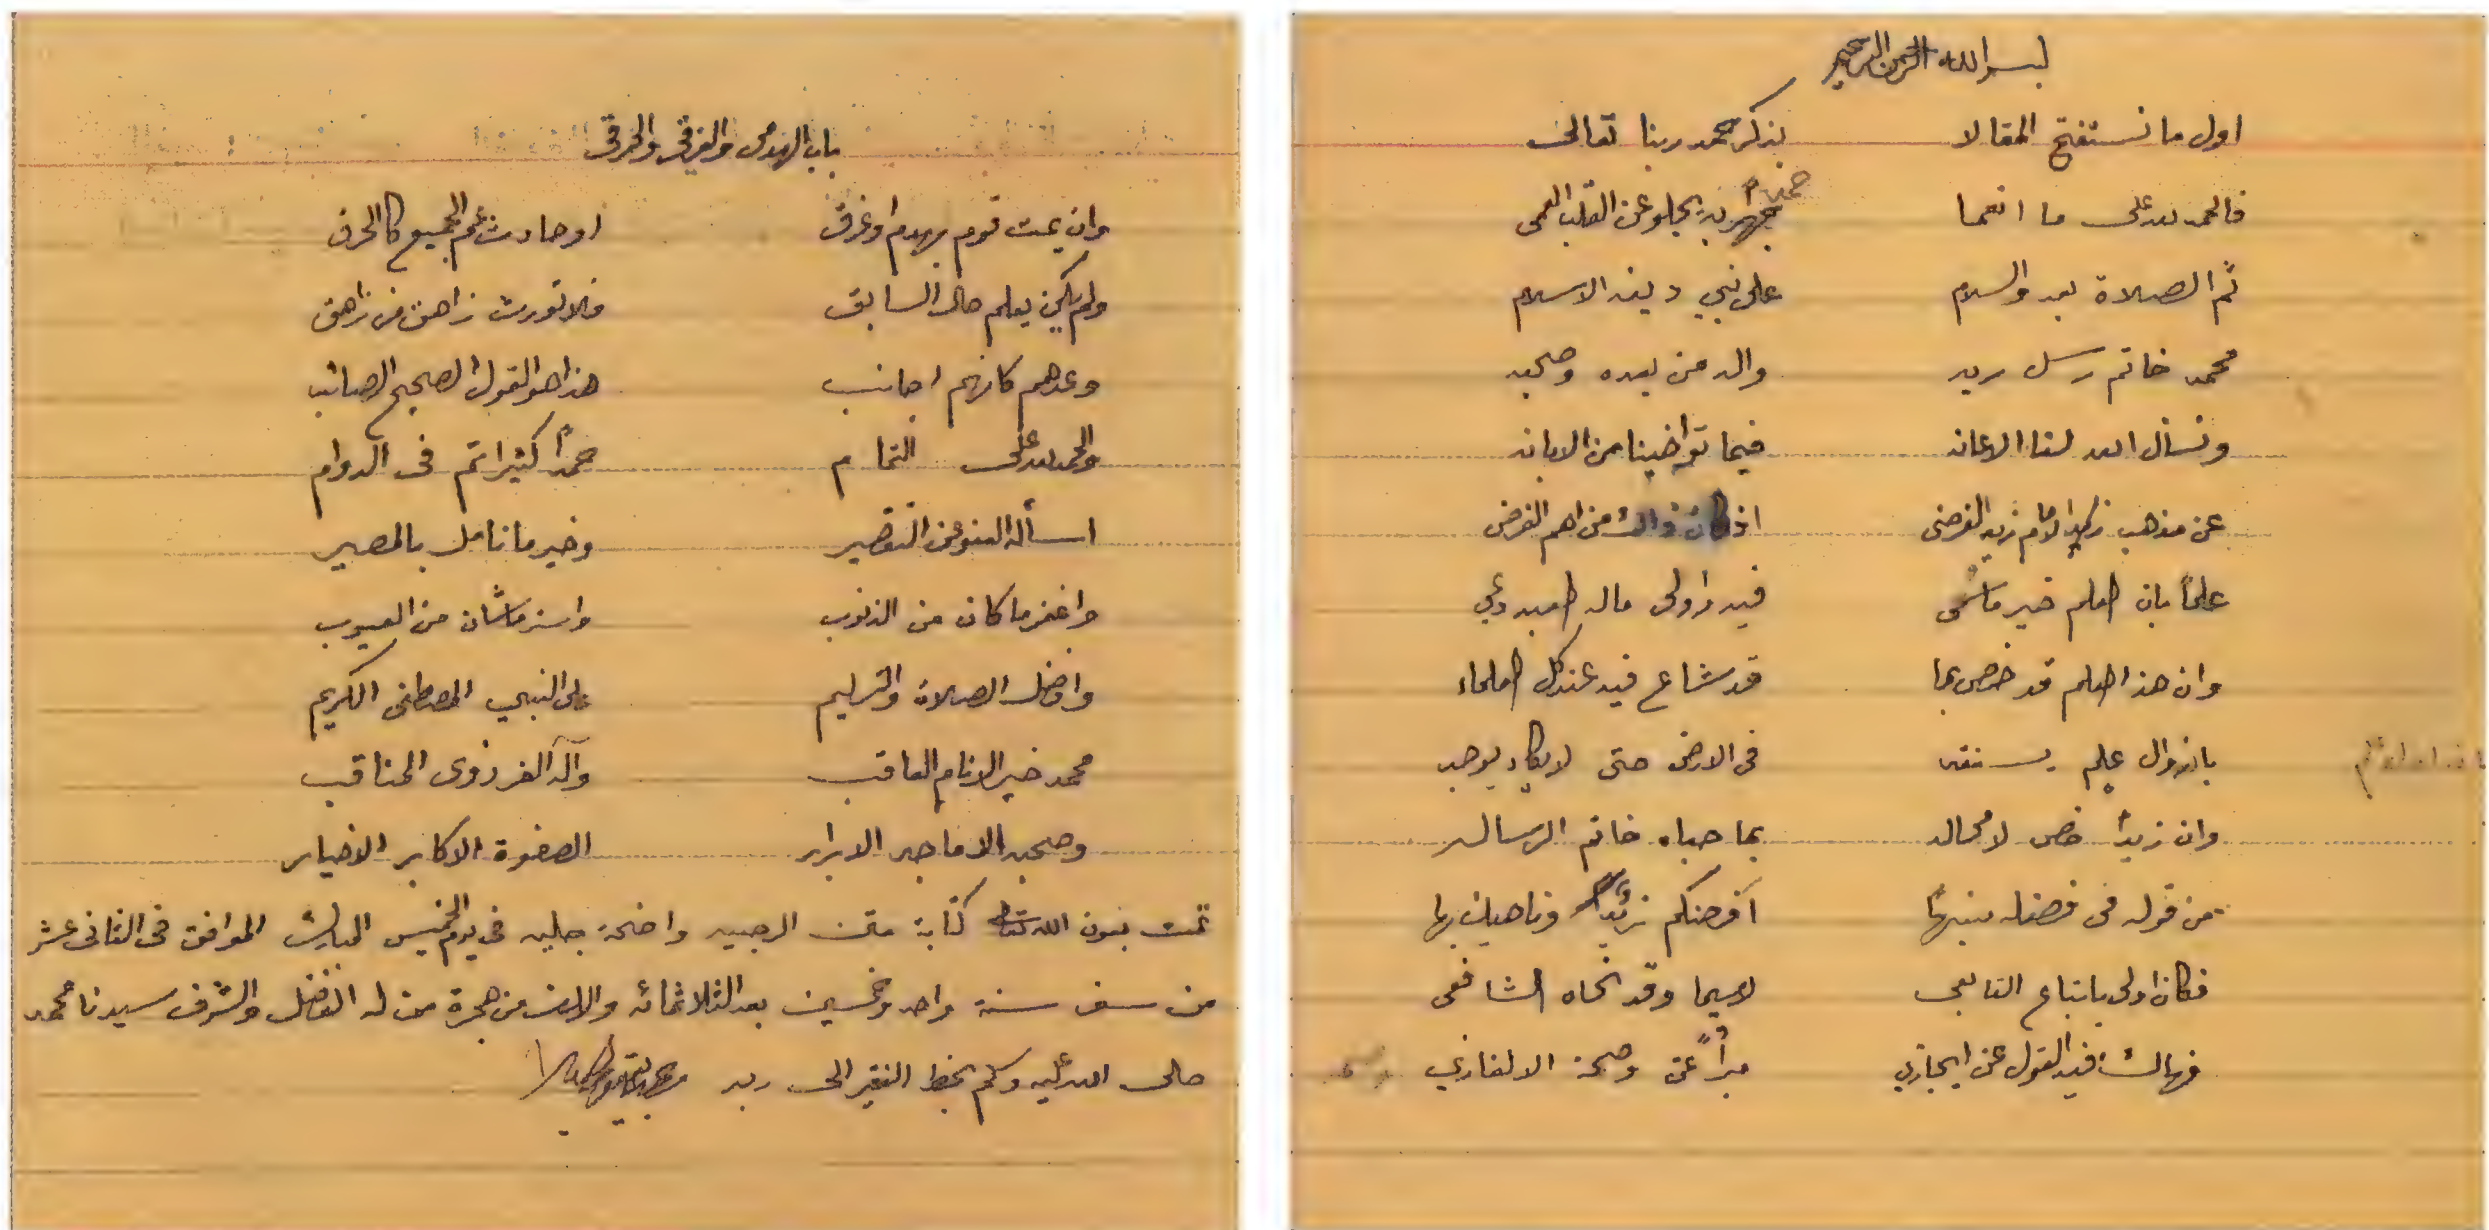 بسم الله الرحمن الرحيم
اول ما نستفتح المقالا بذكر حمد ربنا تعالى
فالحمد لله على ما انعما حمدا به يجلو عن القلب العمى
ثم الصلاة بعد والسلام على نبي دينه الاسلام
محمد خاتم رسل ربه واله من بعده وصحبه
ونسأل الله لنا الاعانه فيما توخينا من الابانه
عن مذهب الامام زيد الفرضي اذ كان ذاك من اهم الفرض
علماً بان العلم خير ما سعى فيه واولى ماله العبد دعي
وان هذا العلم قد خص بما قد شاع فيه عند كل العلماء
بانه اول علم يفقد في الارض حتى لا يكاد يوجد
وان زيداً خص لا محاله بما حباه خاتم الرساله
من قوله في فضله منبهاً افرضكم زيدٌ وناهيك بها
فكان اولى باتباع التابعي لاسيما وقد نحاه الشافعي
فهاك فيه القول عن ايجازي مبرأً عن وصمة الالغازي
باب الهدمى والغرقى والحرقى
وان يمت قوم بهدم او غرق او حادث عم الجميع كالحرق
ولم يكن يعلم حال السابق فلا تورث زاهق من زاهق
وعدهم كانهم اجانب هذا هو القول الصحيح الصائب
والحمد لله على التمام حمداً كثيرا تم في الدوام
اسأله العفو عن التقصير وخير ما نامل بالمصير
واغفر ما كان من الذنوب واستر ماشان من العيوب
وافضل الصلاة والتسليم على النبي المصطفى الكريم
محمد خير الانام العاقب وآله الغر ذوى المناقب
وصحبه الاماجد الابرار الصفوة الاكابر الاخيار
تمت بعون الله كتابة متن الرحبيه واضحة جليه في يوم الخميس المبارك الموافق في الثاني عشر
من سنة واحد وخمسين بعد الثلاثمائه والالف من هجرة من له الفضل والشرف سيدنا محمد
صلى الله عليه وسلم بخط الفقير الى ربه